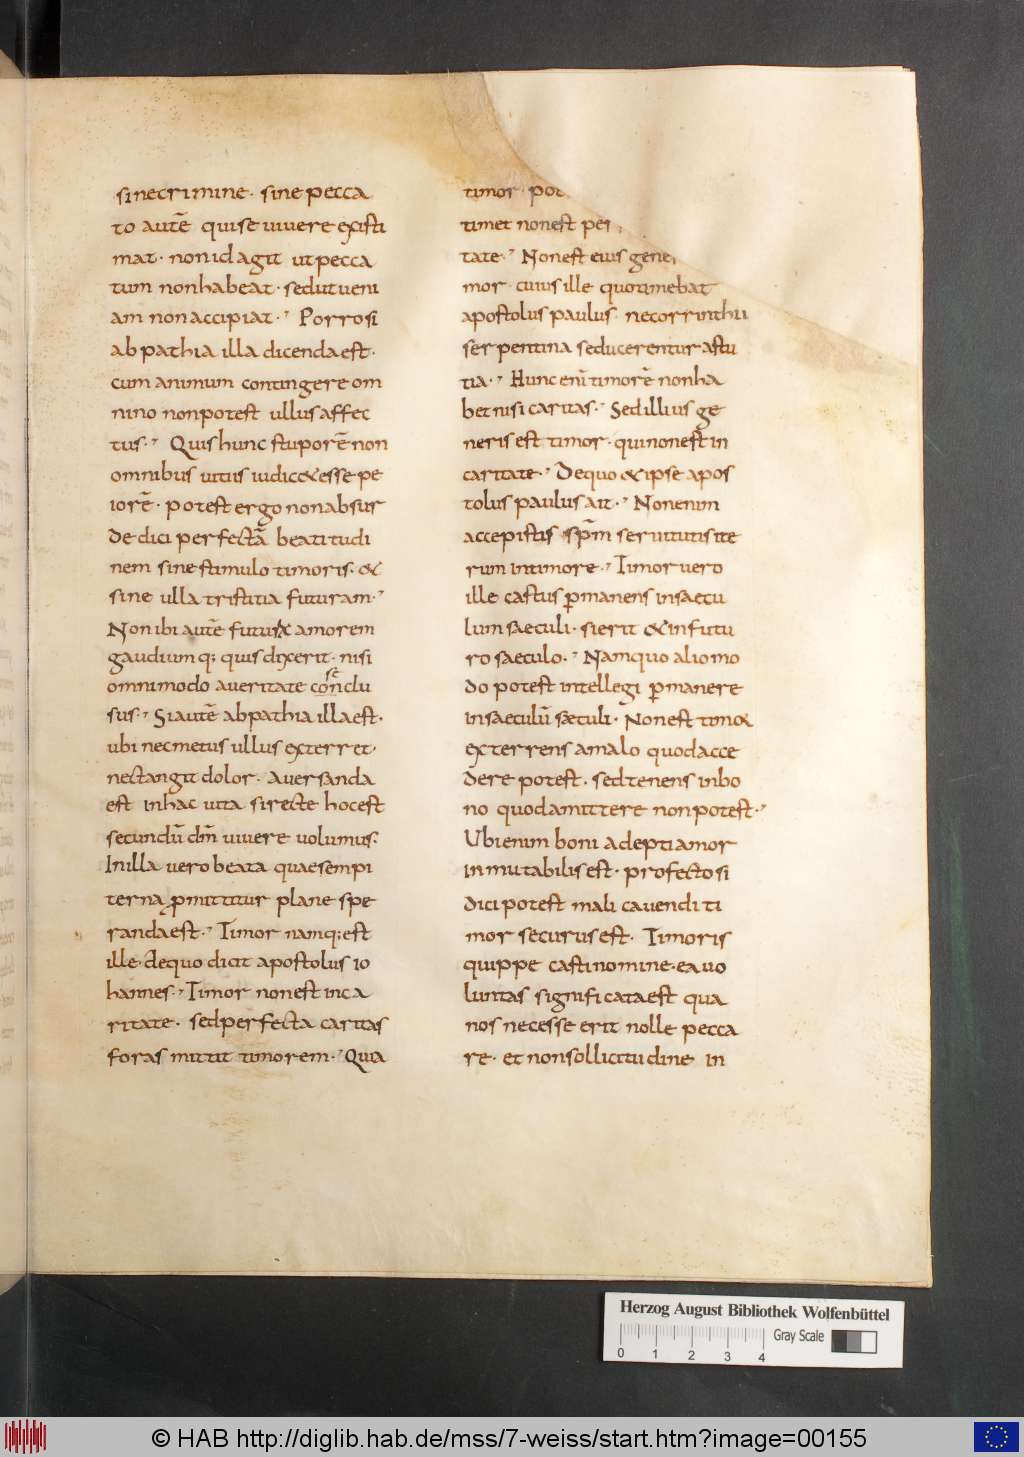 sine crimine · sine pecca
to autē quise uiuere existi
mat · non id agit ut pecca
tum non habeat · sed ut ueni
am non accipiat · Porro si
abpathia illa dicenda est ·
cum animum contingere om
nino non potest ullus affec
tus · Quis hunc stuporē non
omnibus uitiis iudic& esse pe
iorē · potest ergo non absur
de dici perfectā beatitudi
nem sine stimulo timoris · &
sine ulla tristitia futuram ·
Non ibi autē futurā amorem
gaudium q; quis dixerit · nisi
omnimodo a ueritate conclu
se
sus · Si autē abpathia illa est ·
ubi nec metus ullus exterret ·
nec tangit dolor · Auersanda
est in hac uita si recte hoc est
secundū dm̄ uiuere uolumus ·
In illa uero beata quae sempi
terna ꝓmittitur plane spe
randa est · Timor namq; est
ille · de quo dicit apostolus io
hannes · Timor non est in ca
ritate · sed perfecta caritas
foras mittit timorem · Quia
timor · poe
timet non est per
tate · Non est eius gene
mor · cuius ille quo timebat
apostolus paulus · ne corrinthii
serpentina seducerentur astu
tia · Hunc enī timorē non ha
bet nisi caritas · Sed illius ge
neris est timor · qui non est in
caritate · De quo & ipse apos
tolus paulus ait · Non enim
accepistis sp̄m seruitutis ite
rum in timore · Timor uero
ille castus ꝑmanens in saecu
lum saeculi · si erit & in futu
ro saeculo · Namquo alio mo
do potest intellegi ꝑmanere
in saeculū sæculi · Non est timor
exterrens a malo quod acce
dere potest · sed tenens in bo
no quod amittere non potest ·
Ubi enim boni adepti amor
inmutabilis est · profecto si
dici potest mali cauendi ti
mor securus est · Timoris
quippe casti nomine · ea uo
luntas significata est qua
nos necesse erit nolle pecca
re · et non sollicitudine in
Herzog August Bibliothek Wolfenbüttel
0 1 2 3 4 Gray Scale
© HAB http://diglib.hab.de/mss/7-weiss/start.htm?image=00155